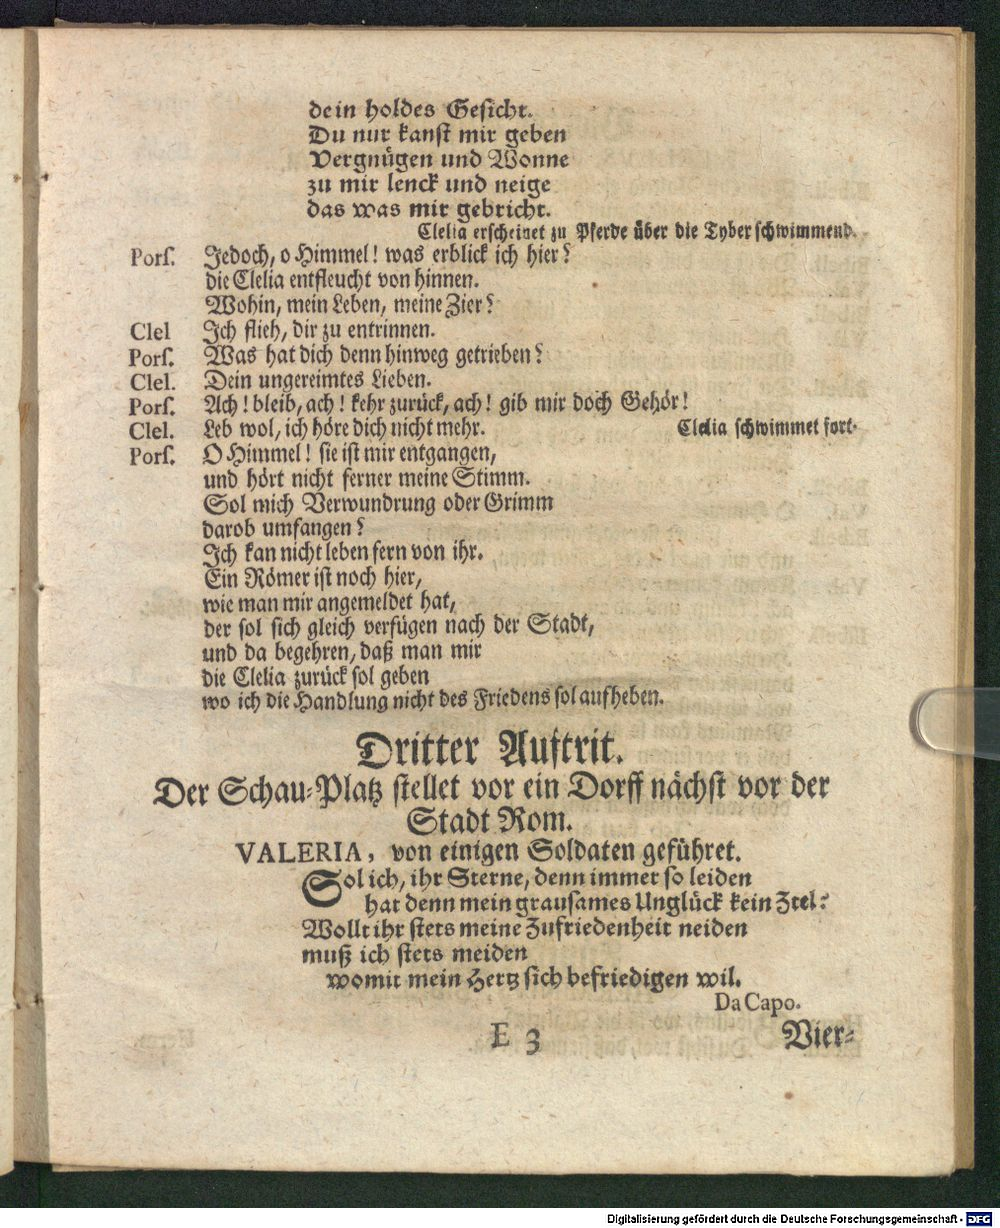 dein holdes Gesicht.
Du nur kanst mir geben
Vergnügen und Wonne
zu mir lenck und neige
das was mir gebricht.
Clelia erscheinet zu Pferde über die Tyber schwimmend.
Porſ. Jedoch, o Himmel! was erblick ich hier?
die Clelia entfleucht von hinnen.
Wohin, mein Leben, meine Zier?
Clel Ich flieh, dir zu entrinnen.
Porſ. Was hat dich denn hinweg getrieben?
Clel. Dein ungereimtes Lieben.
Porſ. Ach! bleib, ach! kehr zurück, ach! gib mir doch Gehör!
Clel. Leb wol, ich höre dich nicht mehr. Clelia schwimmet fort.
Porſ. O Himmel! sie ist mir entgangen,
und hört nicht ferner meine Stimm.
Sol mich Verwundrung oder Grimm
darob umfangen?
Ich kan nicht leben fern von ihr.
Ein Römer ist noch hier,
wie man mir angemeldet hat,
der sol sich gleich verfügen nach der Stadt,
und da begehren, daß man mir
die Clelia zurück sol geben
wo ich die Handlung nicht des Friedens sol aufheben.
Dritter Auftrit.
Der Schau-Platz stellet vor ein Dorff nächst vor der
Stadt Rom.
VALERIA, von einigen Soldaten geführet.
Sol ich, ihr Sterne, denn immer so leiden
hat denn mein grausames Unglück kein Ziel?
Wollt ihr stets meine Zufriedenheit neiden
muß ich stets meiden
womit mein Hertz sich befriedigen wil.
Da Capo.
E 3 Vier-
Digitalisierung gefördert durch die Deutsche Forschungsgemeinschaft - DFG